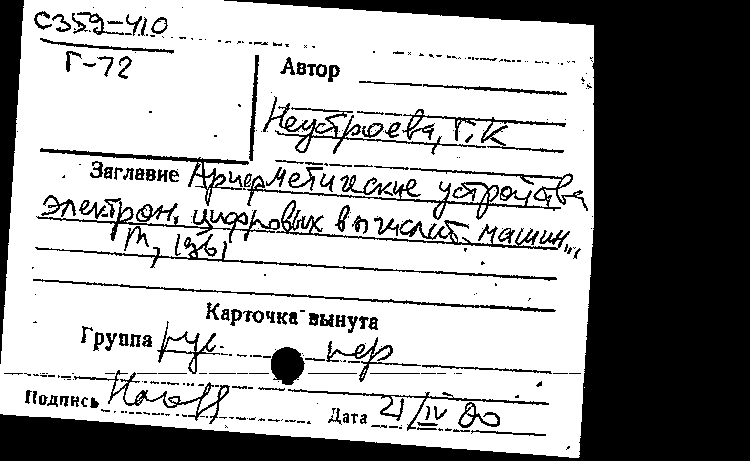 С359-410
Г-72
Автор
Неустроева, Г. К
Заглавие Арифметические устройства
электрон. цифровых вычислит. машин...
М, 1961
Карточка вынута
Группа рус. пер
Подпись
Дата 21/IV 80